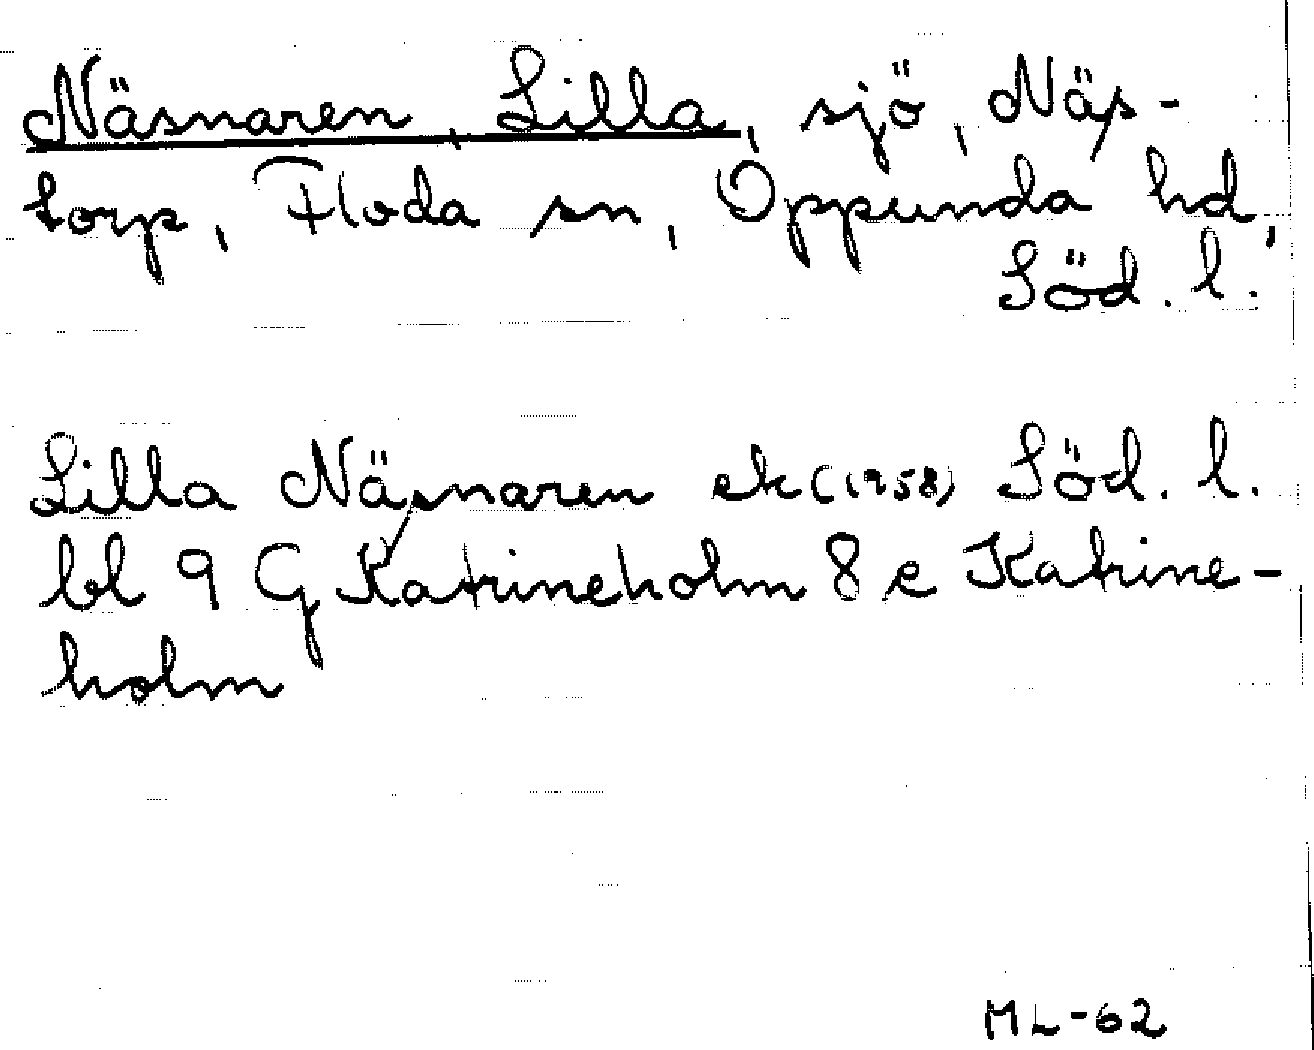 Näsnaren, Lilla, sjö, Näs-
torp, Floda sn, Oppunda hd,
Söd. l.
Lilla Näsnaren ek (1958) Söd. l.
bl 9 G Katrineholm 8 e Katrine-
holm
ML-62